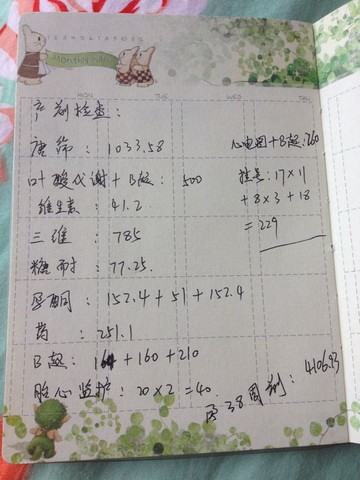 Monthly Plan
MON TUE WED THU
产前检查：
唐筛：1033.58
心电图+B超：260
叶酸代谢+B超：500
挂号：17×11
+8×3+18
=229
维生素：41.2
三维：785
糖耐：77.25.
孕酮：152.4+51+152.4
药：251.1
B超：+160+210
胎心监护：20×2=40
38周别：4106.93